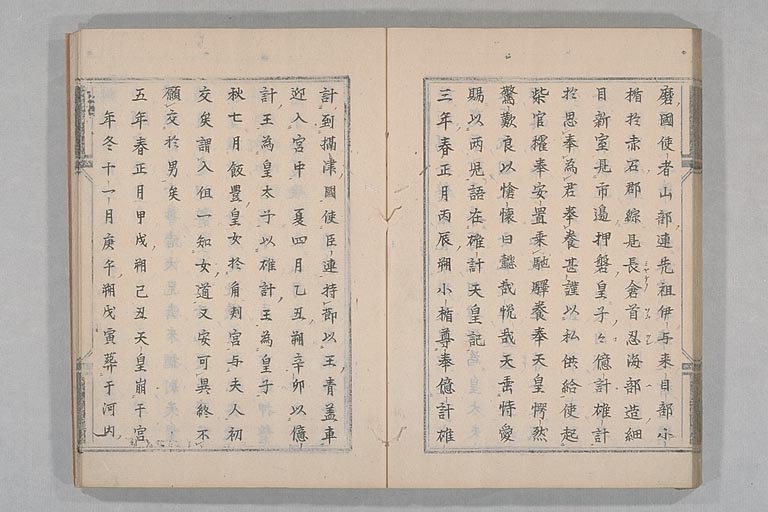 磨國使者山部連先祖伊与来目部小
楯於赤石郡縮見長倉首忍海部造細
目新室見市邊押磐皇子々億計雄計
於思奉為君奉養甚謹以私供給使起
柴宮權奉安置乗馳驛奏奉天皇愕然
驚歎良以愴懐曰懿哉悦哉天垂恃愛
賜以兩児語在雄計天皇記
三年春正月丙辰朔小楯等奉億計雄
計到攝津國使臣連持節以王青盖車
迎入宮中夏四月乙丑朔辛卯以億
計王為皇太子以雄計王為皇子
秋七月飯豊皇女於角刺宮与夫人初
交矣謂人但一知女道又安可異終不
願交於男矣
五年春正月甲戌朔己丑天皇崩于宮
年冬十一月庚午朔戊寅葬于河内